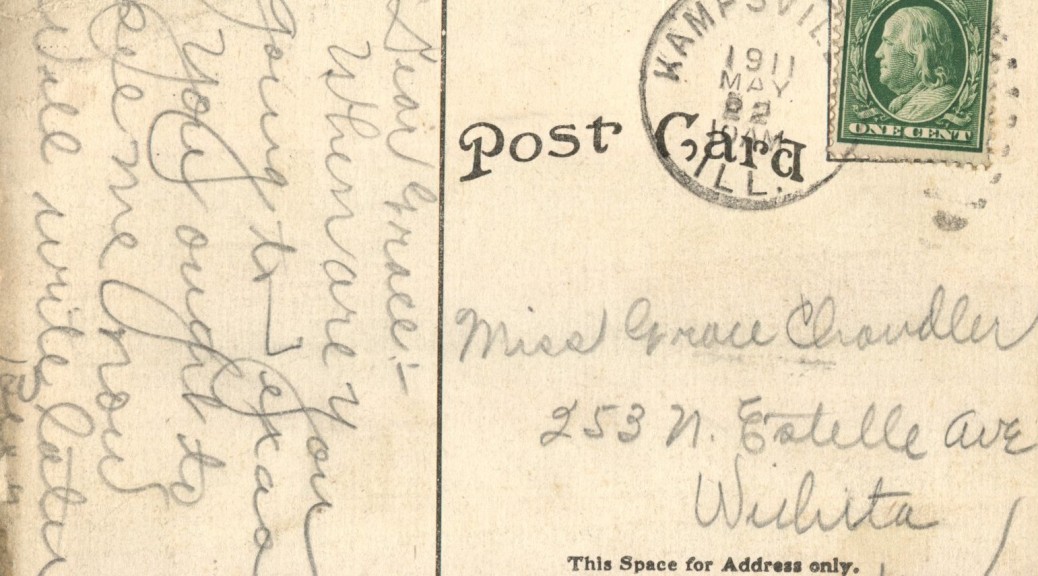 Dear Grace:-
When are you
going to Texas
You ought to
see me now
Will write later
Post Card
KAMPSVILL
1911
MAY
22
10AM
ILL.
ONE CENT
Miss Grace Chandler
253 N. Estelle Ave
Wichita
This Space for Address only.